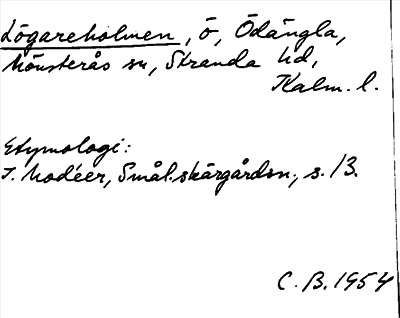 Lögareholmen, ö, Ödängla,
Mönsterås sn, Stranda hd,
Kalm. l.
Etymologi:
I. Modéer, Smål. skärgården, s. 13.
C. B. 1954